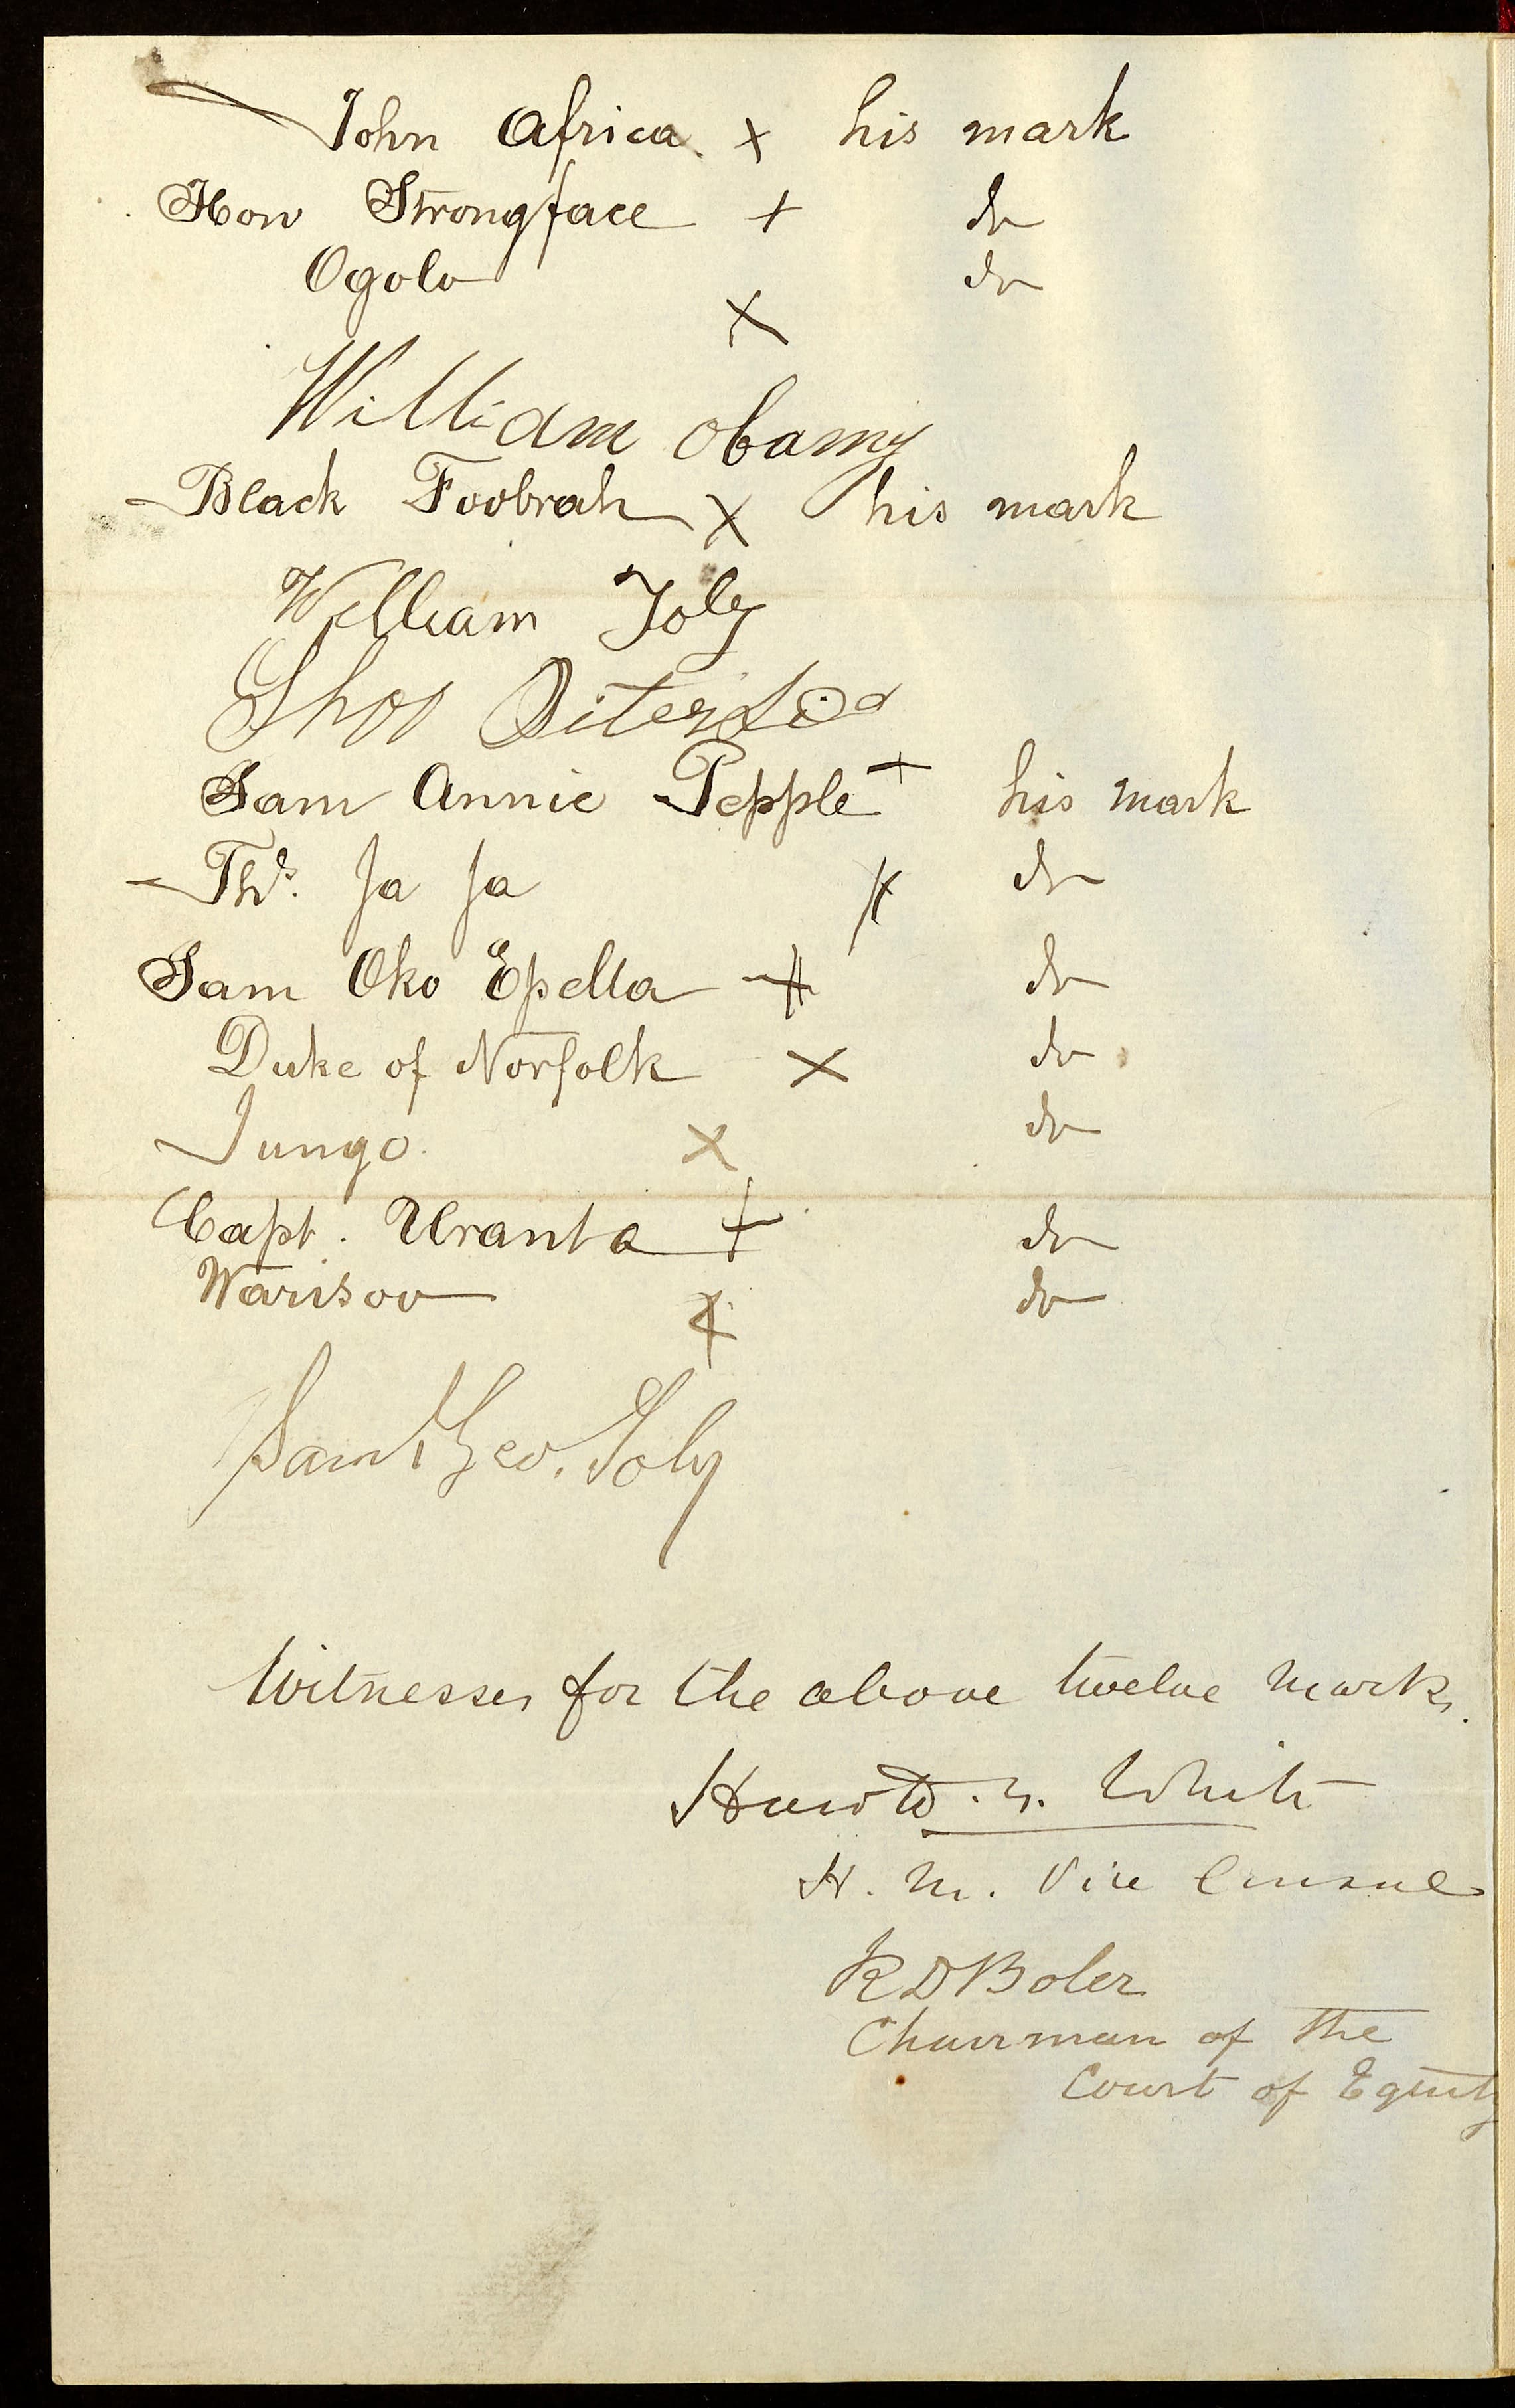 John Africa x his mark
How Strongface + do
Ogolo x do
William Obamy
Black Foobrah x his mark
William Toby
Shoo
Sam Annie Pepple + his mark
Thos. Ja Ja x do
Sam Oko Epella + do
Duke of Norfolk x do
Jungo x do
Capt. Uranta + do
Warisoo x do
Saml Geo. Toby
Witnesses for the above twelve marks.
White
H. M. Vice Consul
R D Boler
Chairman of the
Court of Equity